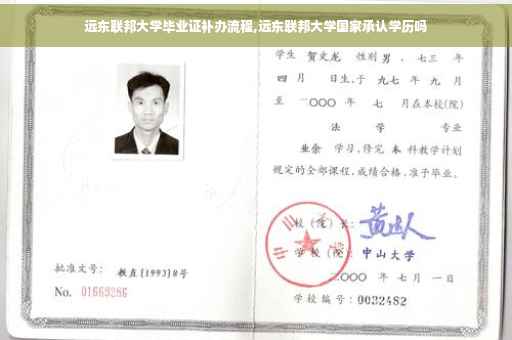 远东联邦大学毕业证补办流程,远东联邦大学国家承认学历吗
学生 贺文龙 性别 男 、七三 年
四 月 日生,于 九七 年 九 月
至 二〇〇〇 年 七 月在本校(院)
法 学 专业
业余 学习,修完 本 科教学计划
规定的全部课程,成绩合格,准予毕业。
校(院)长:
学校(院): 中山大学
二〇〇〇 年 七 月 一 日
学校编号: 0032482
批准文号: 教直[1993]8号
No. 01669286